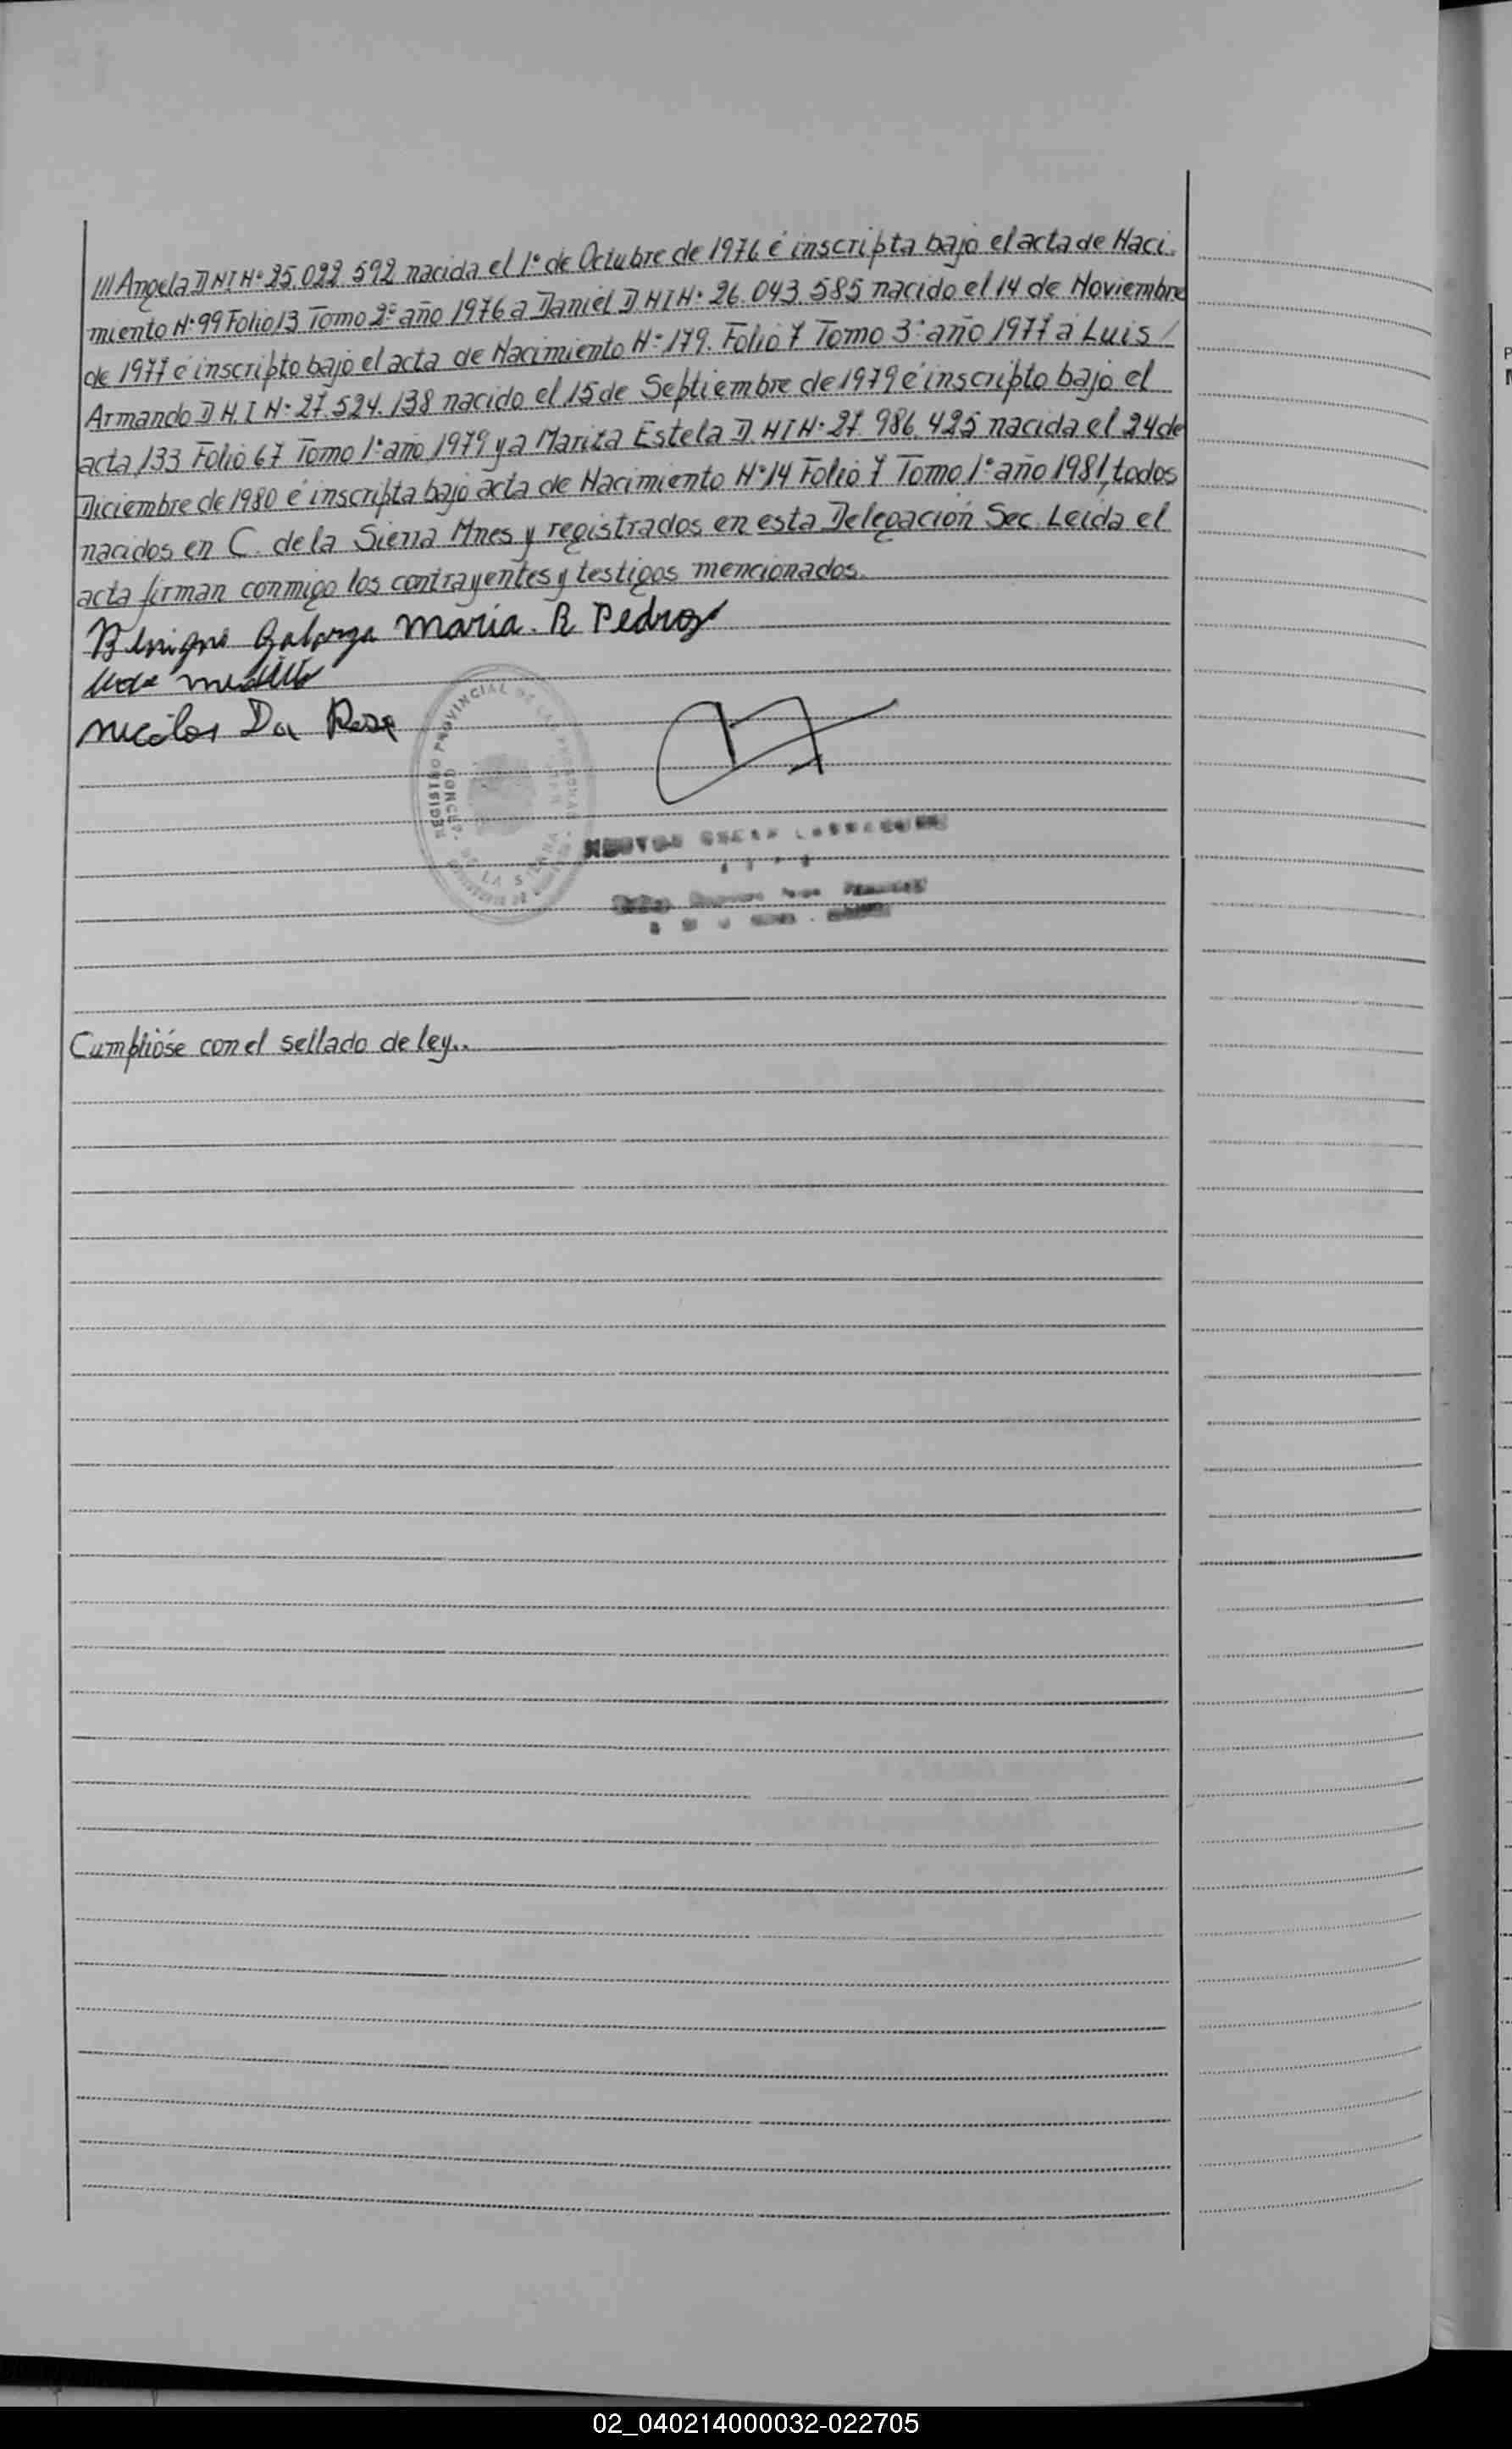 /// Angela D N I N° 25.022.592 nacida el 1° de Octubre de 1976 é inscripta bajo el acta de Naci-
miento N° 99 Folio 13 Tomo 2° año 1976 a Daniel D.N I N° 26.043.585 nacido el 14 de Noviembre
de 1977 é inscripto bajo el acta de Nacimiento N° 179. Folio 7 Tomo 3° año 1977 a Luis /
Armando D.N.I N° 27.524.138 nacido el 15 de Septiembre de 1979 é inscripto bajo el
acta 133 Folio 67 Tomo 1° año 1979 y a Mariza Estela D.N I N° 27.986.425 nacida el 24 de
Diciembre de 1980 é inscripta bajo acta de Nacimiento N° 14 Folio 7 Tomo 1° año 1981, todos
nacidos en C. de la Sierra Mnes y registrados en esta Delegación Sec. Leida el
acta firman conmigo los contrayentes y testigos mencionados.
Benigno Galarza Maria. R Pedrozo
Nicolas Da Rosa
REGISTRO PROVINCIAL DE LAS PERSONAS
CONCEP. DE LA SIERRA
Cumplióse con el sellado de ley..
02_040214000032-022705